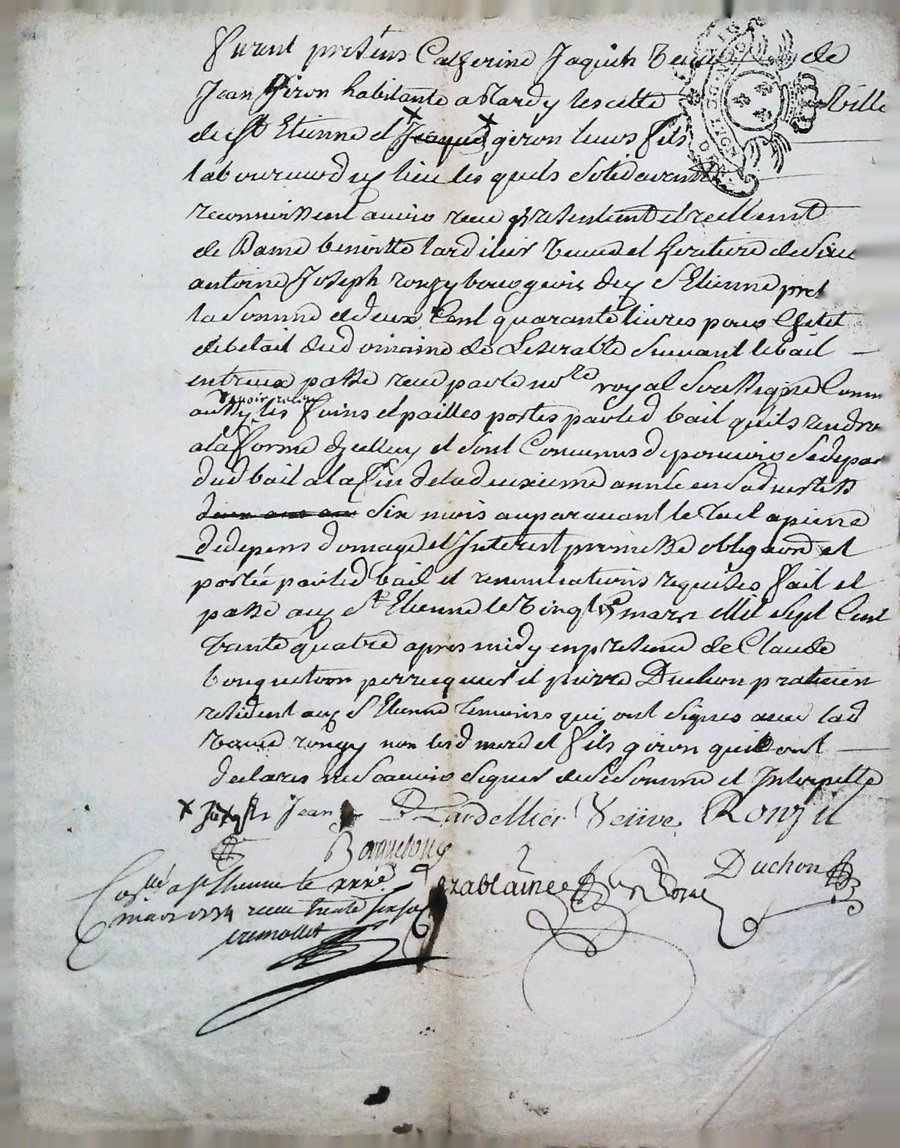 furent presens Catherine Jaquin veuve de
Jean giron habitante a et Jaques giron leurs fils
laboureur dud lieu lesquels solidairement
reconnoissent avoir receu presentement et reellemt
de Dame benoitte lardilier veuve et heritiere de Sieur
antoine Joseph ronzy bourgeois dud St Etienne
la somme de deux Cent quarante livres pour
de betail dud domaine de suivant le bail
entreux passé receu par le nore royal soussigné Comm
aussy les foins et pailles portes par led bail quils rendro
a la forme dycelluy et sont Convenus de pouvoir se depar
dud bail a la fin de la deuxieme année en s advertiss
six mois auparavant le tout a peine
de depens domage et Interest promesse obligaon et
portée par led bail et renonciations requises fait et
passé aud St Etienne le vingt mars Mil Sept Cent
trante quatre apres midy en presence de Claude
perrequier et pierre Duchon praticien
resident aud St Etienne temoins qui ont signes avec lad
veuve ronzy non lesd mere et fils giron qui ont
declares ne scavoir signer de ce sommé et Interpellé
x Jean Lardellier Veuve Ronzil
Duchon
Collé a St Etienne le
mars 1734 receu trente six sols